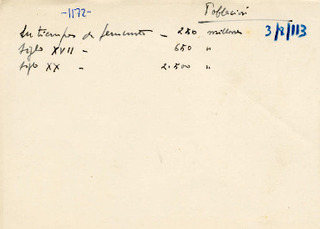 -1172-
Población
En tiempos de Jesucristo - 250 millones
3/2/113
Siglo XVII - 650 "
Siglo XX - 2.500 "